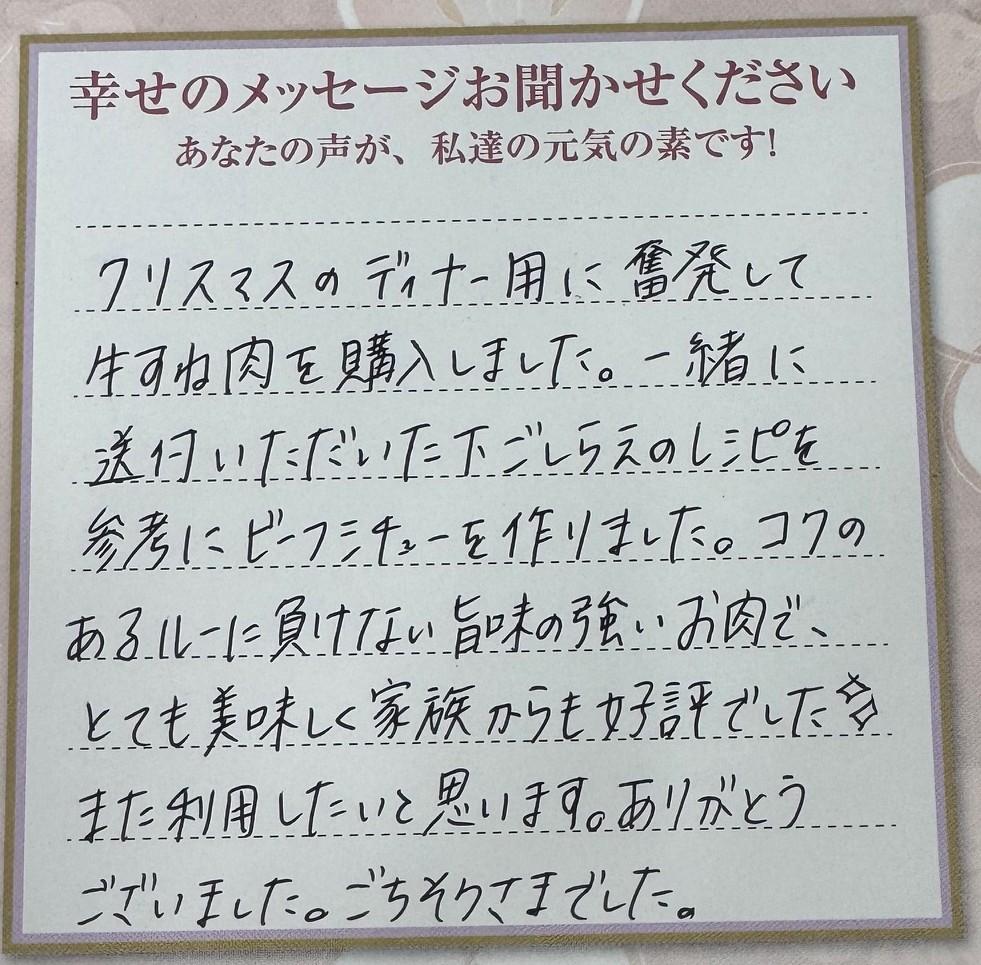 幸せのメッセージお聞かせください
あなたの声が、私達の元気の素です!
クリスマスのディナー用に奮発して
牛すね肉を購入しました。一緒に
送付いただいた下ごしらえのレシピを
参考にビーフシチューを作りました。コクの
あるルーに負けない旨味の強いお肉で、
とても美味しく家族からも好評でした✨
また利用したいと思います。ありがとう
ございました。ごちそうさまでした。